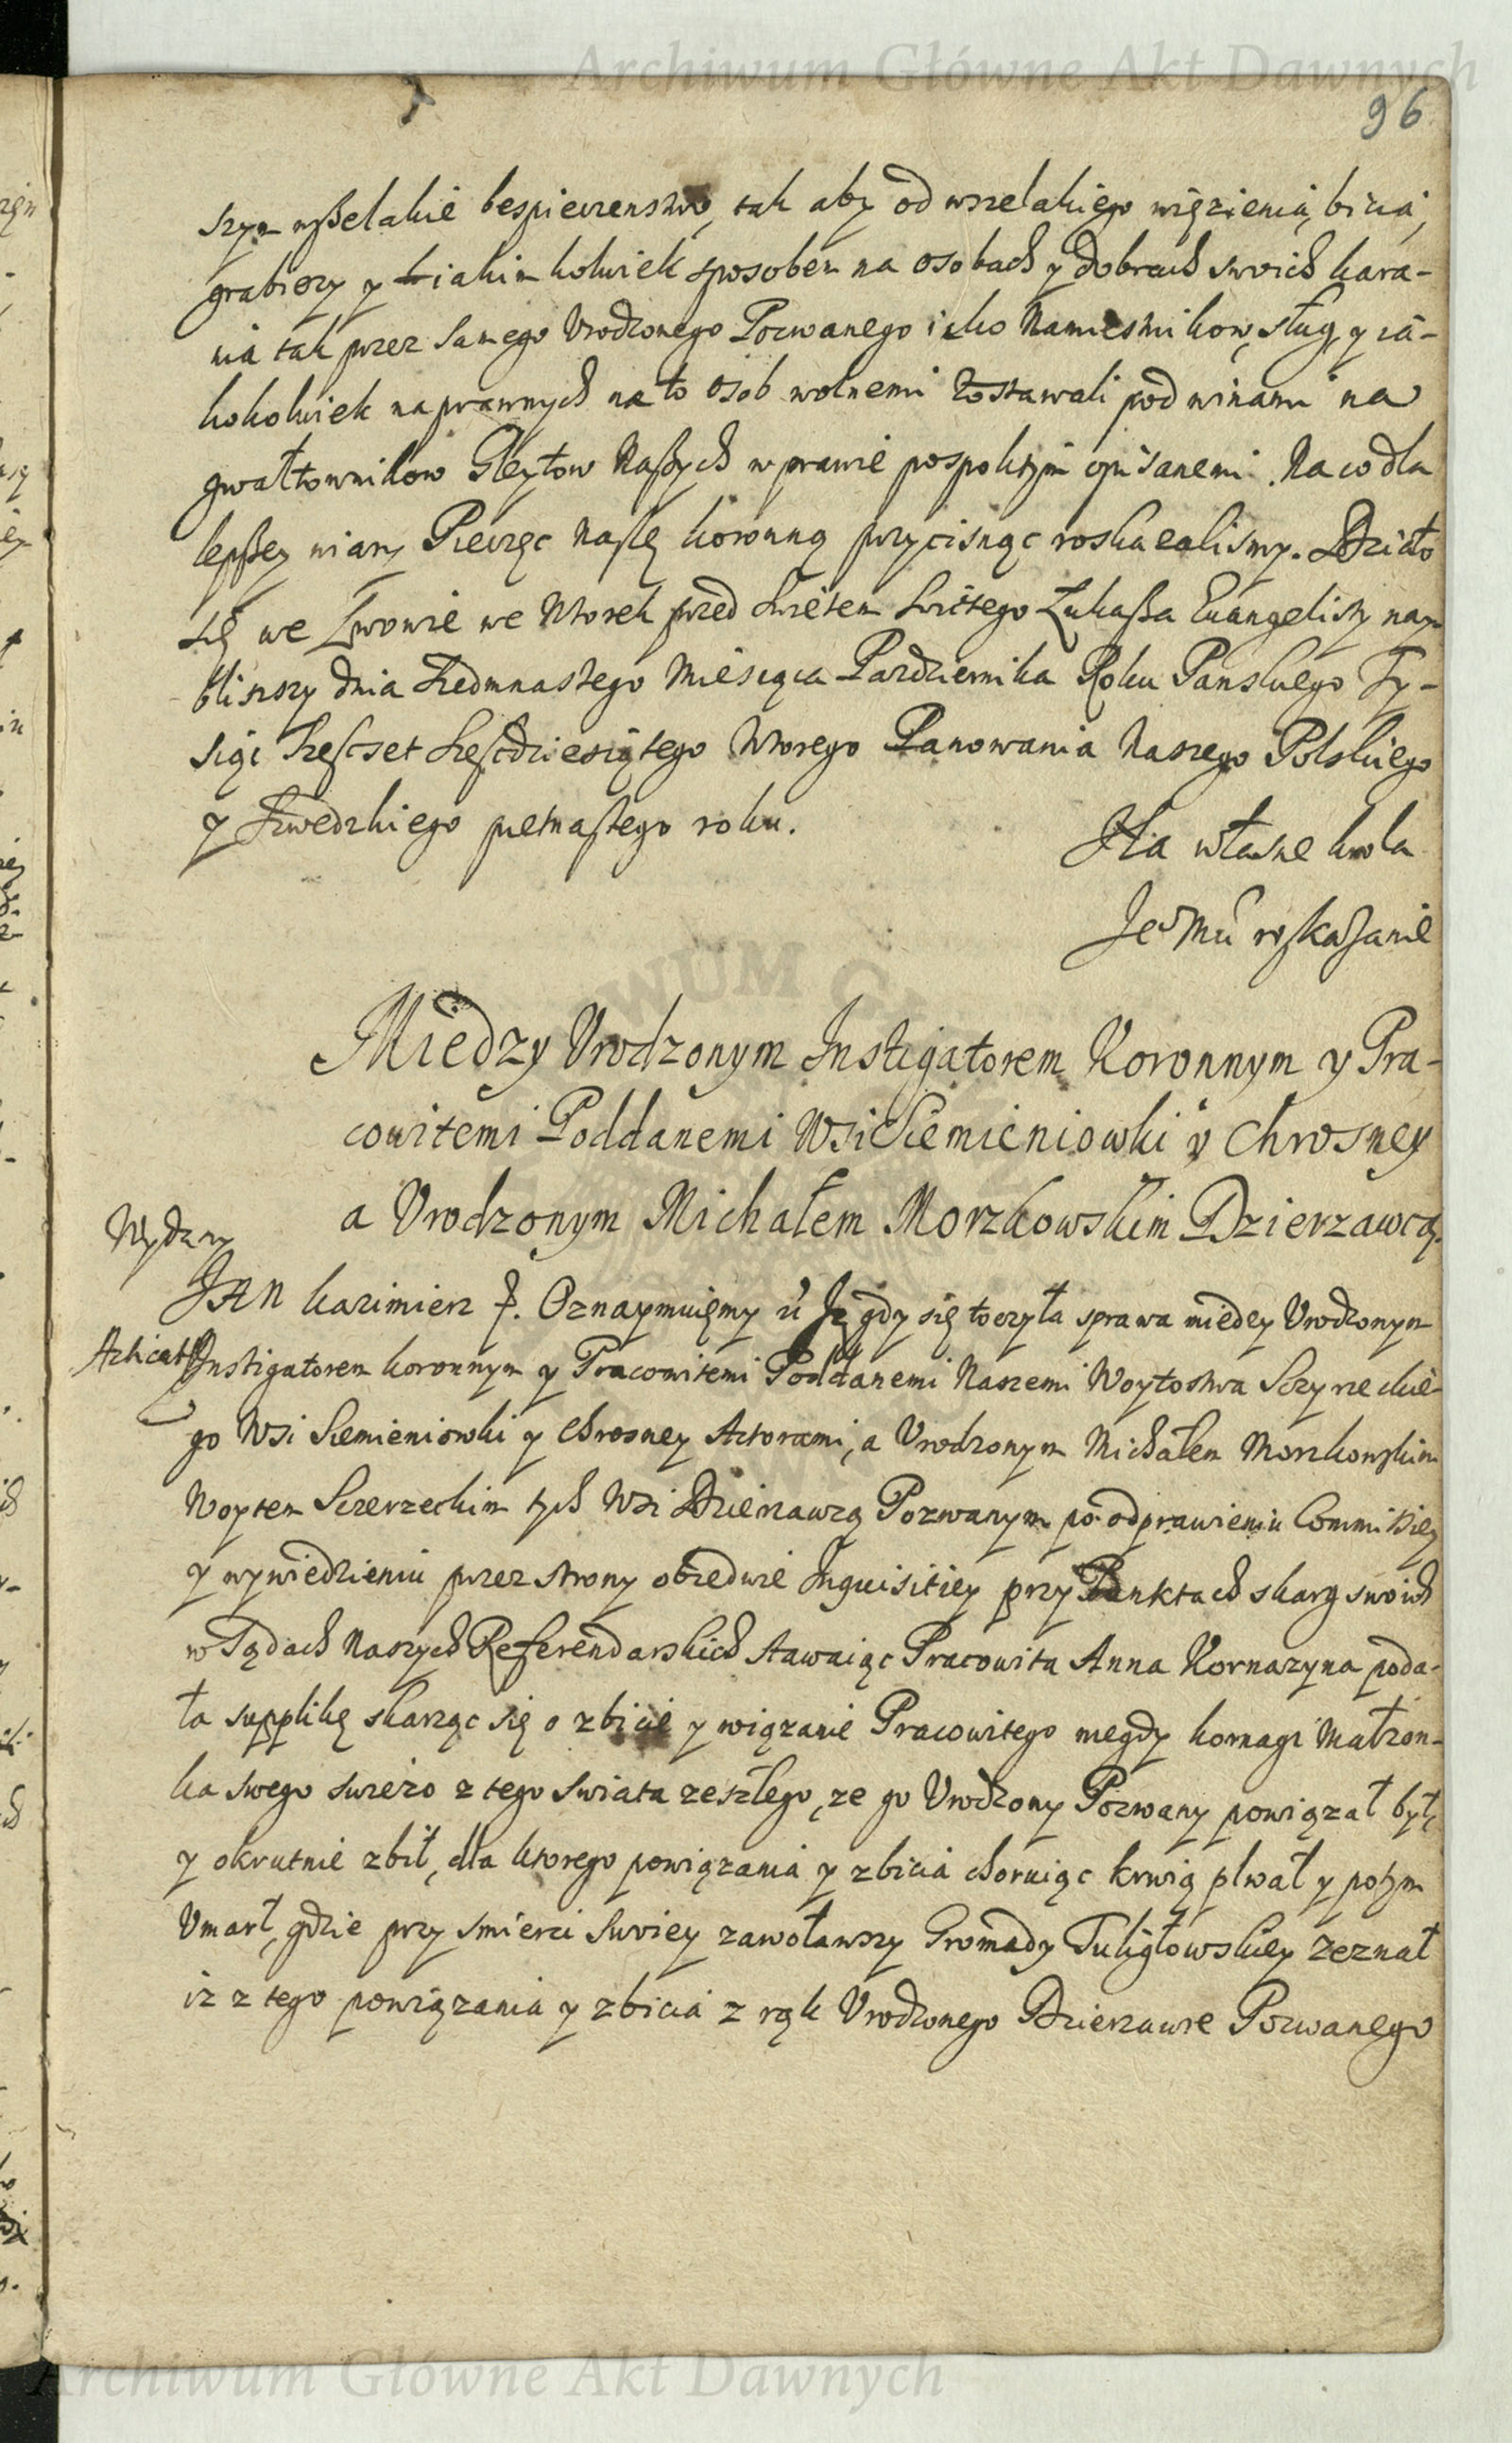 Archiwum Główne Akt Dawnych
96
szym wszelakie bespieczenstwo, tak aby od wszelakiego więzienia, bicia,
grabiezy y iakimkolwiek sposobem na osobach y dobrach swoich kara-
nia tak przez samego Vrodzonego Pozwanego iako Namiesnikow, sług y ia-
kokolwiek naprawnych na to osob wolnemi zostawali pod winami na
gwałtownikow Gleytow Naszych w prawie pospolitym opisanemi. Na co dla
lepszey wiary Pieczęc Naszę koronną przycisnąc roskazalismy. Działo
się we Lwowie we Wtorek przed Swiętem Swiętego Łukasza Euangelisty nay-
blizszy dnia Siedmnastego Miesiąca Pazdziernika Roku Panskiego Ty-
siąc Szescset Szescdziesiątego Wtorego Panowania Naszego Polskiego
y Szwedzkiego pietnastego roku.
Na własne krola
Je Mci roskazanie
Między Vrodzonym Instigatorem Koronnym y Pra-
cowitemi Poddanemi Wsi Siemieniowki y Chrosney
a Vrodzonym Michałem Morzkowskim Dzierzawcą.
Wydany
JAN Kazimierz
Oznaymuięmy
Iz gdy się toczyła sprawa między Vrodzonym
Instigatorem koronnym y Pracowitemi Poddanemi Naszemi Woytostwa Sczyrzeckie-
go Wsi Siemieniowki y Chrosney Aktorami, a Vrodzonym Michałem Morzkowskim
Woytem Sczerzeckim tych Wsi Dzierzawcą Pozwanym po odprawieniu Commissiey
y wywiedzieniu przez strony obiedwie Inquisitiey przy Punktach skarg swoich
w Sądach Naszych Referendarskich stawaiąc Pracowita Anna Kornazyna poda-
ła supplikę skarząc się o zbicie y wiązanie Pracowitego niegdy Kornagi Małzon-
ka swego swiezo z tego swiata zeszłego, ze go Vrodzony Pozwany powiązał był,
y okrutnie zbił, dla ktorego powiązania y zbicia choruiąc krwią plwał y potym
Vmarł, gdzie przy smierci swoiey zawoławszy Gromady Tuligłowskiey zeznał
iz z tego powiązania y zbicia z rąk Vrodzonego Dzierzawce Pozwanego
Archiwum Główne Akt Dawnych